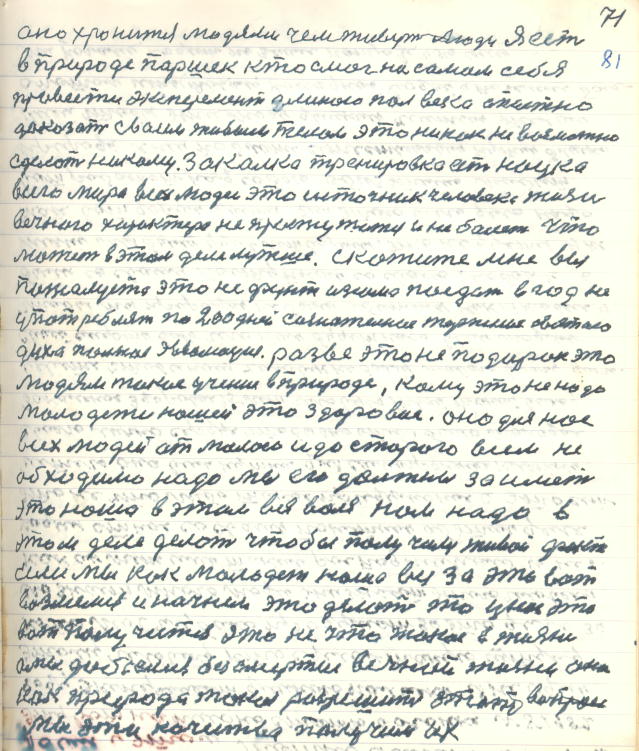 71
81
оно хронится людями чем живут люди Я есть
в природе паршек кто смог на самом себя
провести эксперемент длиною пол века
доказат своим живым телом это никак не возможно
сделат никому. Закалка тренировка ето наука
всего мира всех людей это источник человека жизи
вечного характера не простужатся и не балет Что
может в этом деле лутше. скожите мне вы
пожалуста это не фунт изюма поедат в год не
употреблят по 200 дней сознателное терпение святого
духа полная Революция. развве это не подарок это
людям такое учение в природе, кому это не надо
молодежи нашей это здоровие. оно для нас
всех людей от малого и до старого всем не
обходимо надо мы его должны заимет
это наша в этом вся воля нам надо в
этом деле делат чтобы получит живой факт
если мы как молодеж наша вся за это вот
возмемся и начнем это делат то у нас это
вот получится это не что такое в жизни
мы добемся безсмертие вечной жизни она
нам природа такая разрешит этот вопрос
мы эти качества получим их